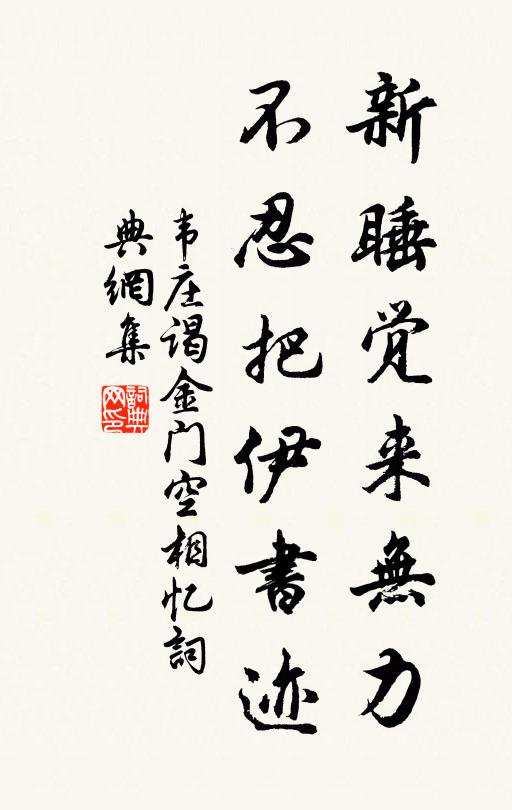 新睡觉来無力
不忍把伊書迹
韦庄谒金门空相忆詞
典網集
詞典网印